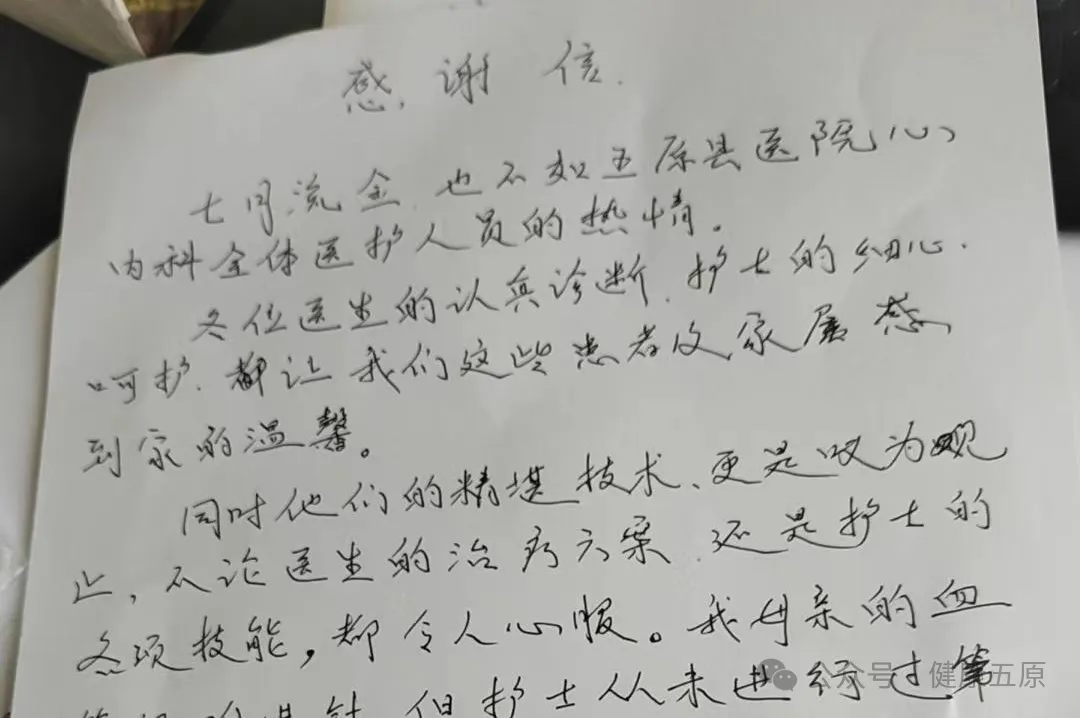 感谢信.
七月流金.也不如五原县医院心
内科全体医护人员的热情。
各位医生的认真诊断.护士的细心.
呵护.都让我们这些患者及家属感
到家的温馨。
同时他们的精堪技术、更是叹为观
止,不论医生的治疗方案.还是护士的
各项技能,都令人心服。我母亲的血
但护士从未进行过第
公众号·健康五原